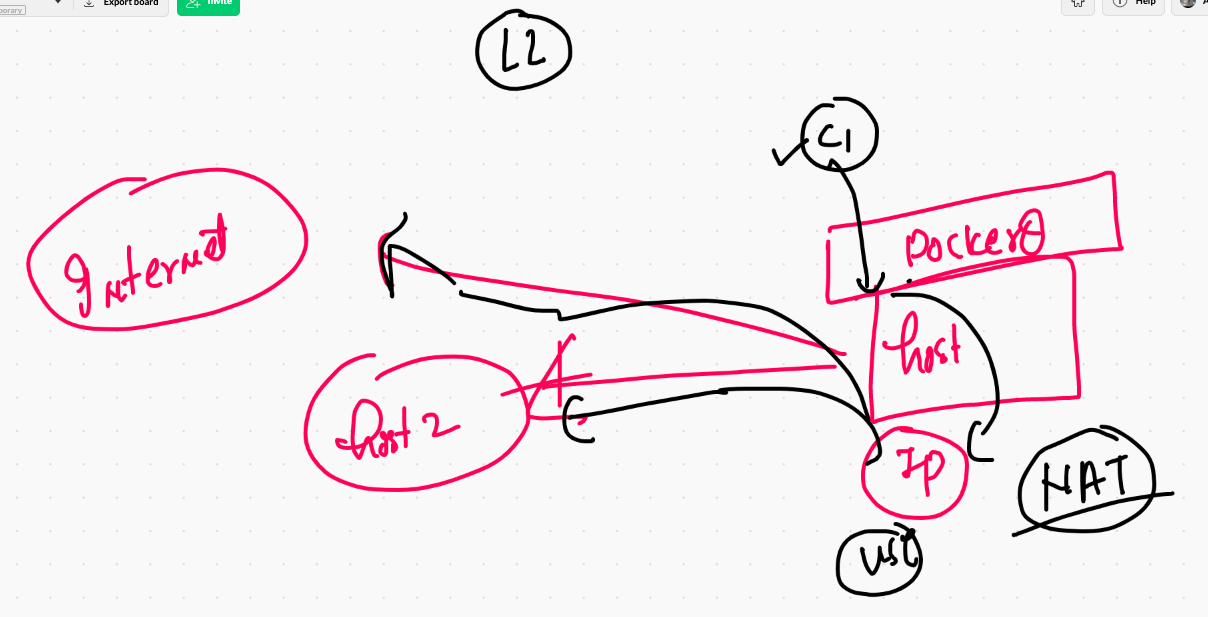 porary
Export board
Invite
Help
L2
C1
Docker0
Internet
host
host 2
IP
NAT